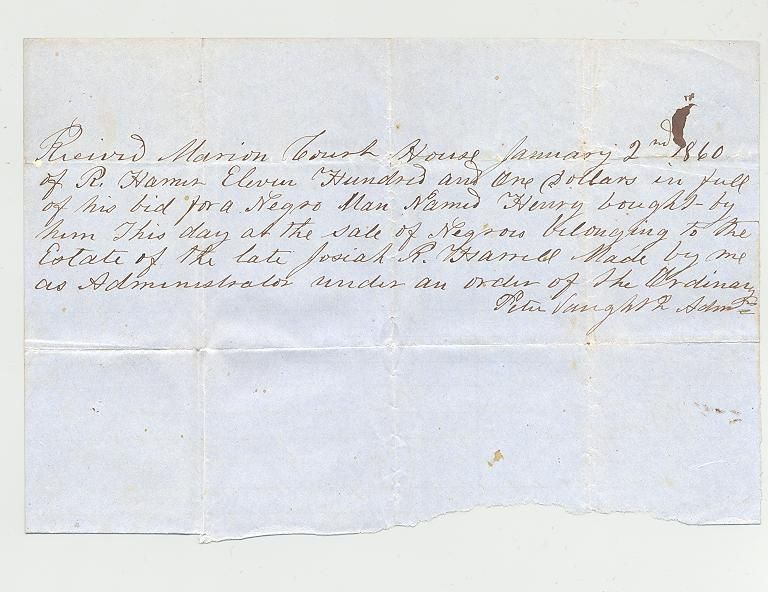 Recievd Marion Court House January 2nd 1860
of R. Hamer Eleven Hundred and One Dollars in full
of his bid for a Negro Man Named Henry bought by
him This day at the sale of Negroes belonging to the
Estate of the late Josiah R. Harrell Made by me
as Administrator under an order of the Ordinary
Peter Vaught Admr